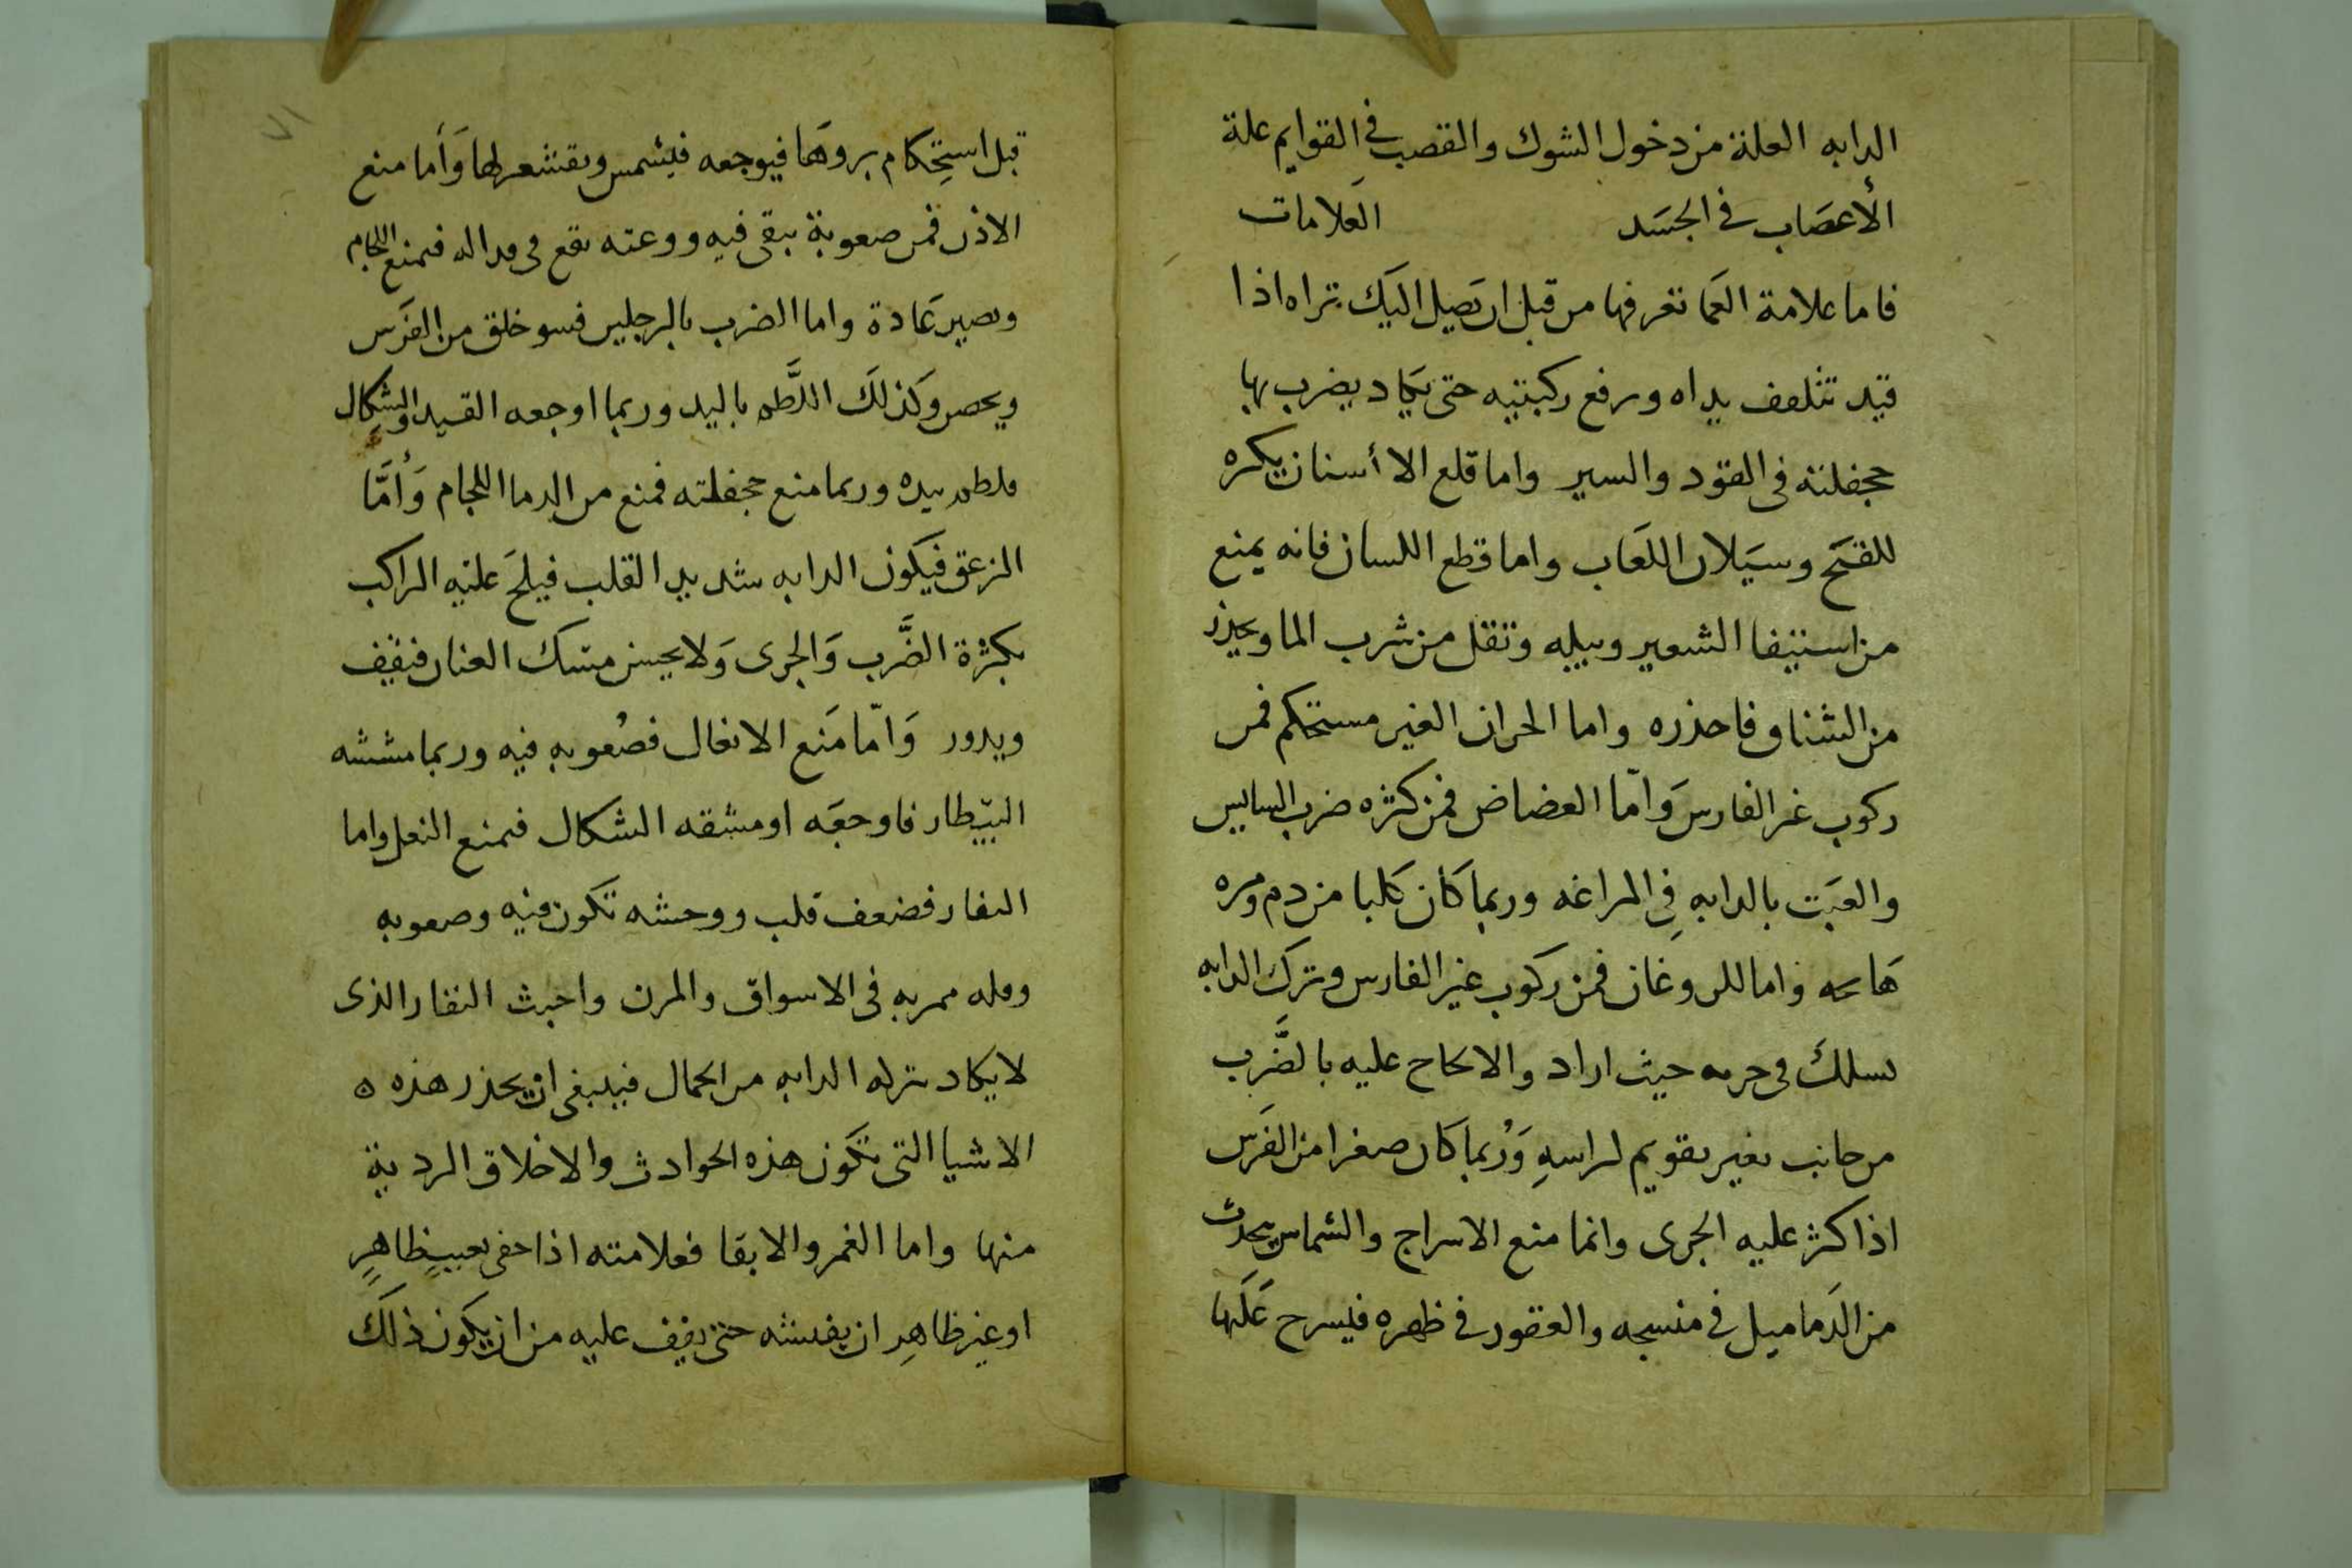 الدابه العلة من دخول الشوك والقصب في القوايم علة
الأعصاب في الجسَد العَلامات
فاما علامة العَما تعرفها من قبل ان تصيل اليَك تراه اذا
قيد تتلفف يداه ورفع ركبتيه حتى يكَاد يضرب بها
جحفلته فى القود والسير واما قلع الاأسنان يكره
للقيَح وسيَلان اللعَاب واما قطع اللسان فانه يمنع
من استيفا الشعير ويبله وتقل من شرب الما ويحذر
من الشناق فاحذره واما الحران الغير مستحكم فمن
ركوب غر الفارس وَامّا العضاض فمن كثره ضرب السايس
والعبَث بالدابه فِي المراغه وربما كان كَلبا من دم ومره
هَا واما الروغان فمن ركوب غير الفارس وترك الدابه
تسلكَ فى جريه حيث اراد والالحاح عليه بالضَّرب
من جانب بغير تقويم لراسهِ وَرُبما كان صغرا من الفرَس
اذا كثر عليه الجرى وانما منع الاسراج والشماس يحدث
من الدَماميل في منسجه والعقور في ظهره فيسرح عَلَيها
٧١
قبل استِحكام بروهَا فيوجعه فيشمس ويقشعر لها وَأما منع
الاذن فمن صعوبة تبقى فيه ووعته تقع فى فيمنع اللجام
ويصير عَادة واما الضرب بالرجلين فسو خلق من الفرَس
ويحصر وكَذلكَ اللَّطم باليد وربما اوجعه القيد والشِكال
فلطم بيده وربما منع جحفلته فمنع من الدما اللجام وَأمَّا
الزعق فيكَون الدابه شديد القلب فيلحَ عليه الراكب
بكثرة الضَّرب وَالجرى وَلا يحسن مسك العنان فيقف
ويدور وَامّا مَنع الانعال فصُعوبه فيه وربما مششه
البيّطار فاوجعَه او مشقه الشكال فيمنع النعل واما
النفار فضعف قلب ووحشه تكَون فيه وصعوبه
وقله ممر به فى الاسواق والمرن واخبث النفار الذى
لا يكاد يترله الدابه من الجمال فينبغى ان يحذر هذه ه
الاشيا التى تكَون هذه الحوادث والاخلاق الردية
منها واما الغمر والابقا فعلامته اذا خفى بعيبٍ ظاهرٍ
او غير ظاهِر ان يفتشه حتى يقف عليه من ان يكون ذلكَ